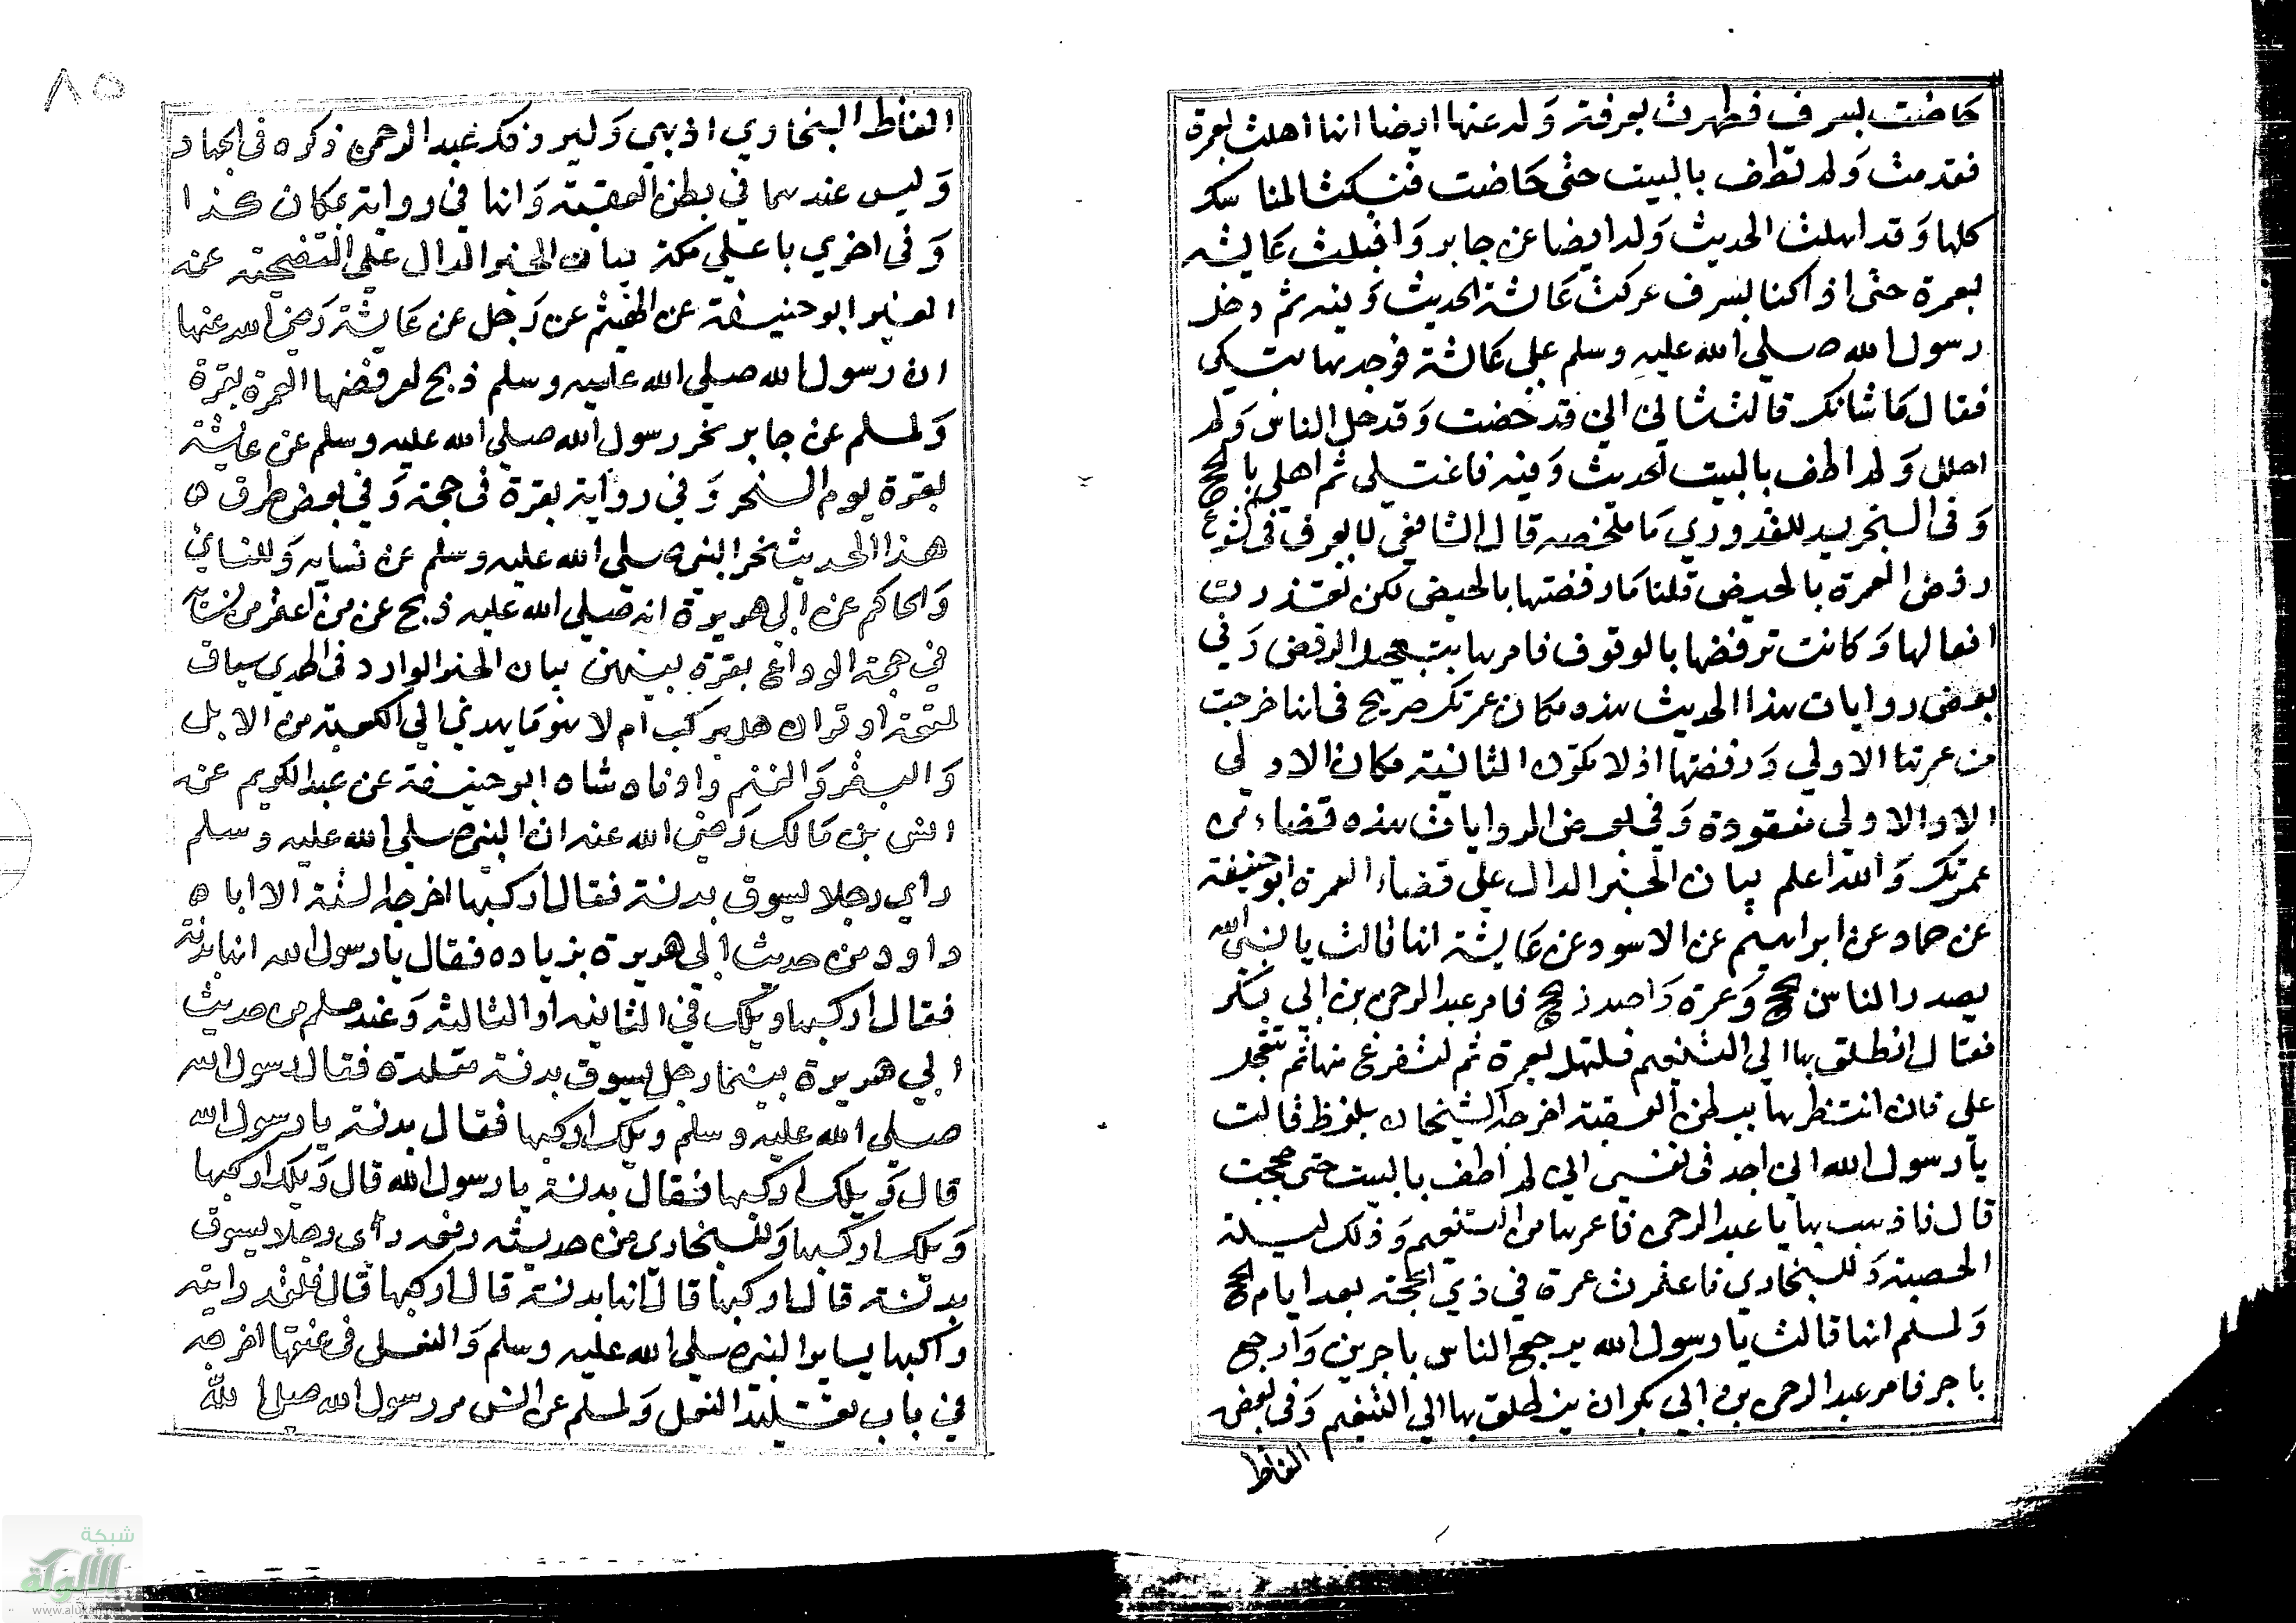 حاضت بسرف فطهرت بعرفة وله عنها ايضا انها اهلت بعمرة
فقدمت ولم تطف بالبيت حتى حاضت فنسكت المناسك
كلها وقد اهلت الحديث وله ايضا عن جابر واقبلت عايشة
بعمرة حتى اذا كنا بسرف عركت عائشة الحديث وفيه ثم دخل
رسول الله صلى الله عليه وسلم على عائشة فوجدها تبكي
فقال ما شانك قالت شاني اني قد حضت وقد حل الناس ولم
احلل ولم اطف بالبيت الحديث وفيه فاغتسلي ثم اهلي بالحج
وفي التجريد للقدوري ما ملخصه قال الشافعي لا يعرف في الشرع
رفض العمرة بالحيض قلنا ما رفضتها بالحيض لكن تعذرت
افعالها وكانت ترفضها بالوقوف فامرها بتعجيل الرفض وفي
بعض روايات هذا الحديث هذه مكان عمرتك صريح في انها خرجت
من عمرتها الاولى ورفضتها اذ لا تكون الثانية مكان الاولى
الا والاولى مفقودة وفي بعض الروايات هذه قضاء من
عمرتك والله اعلم بيان الخبر الدال على قضاء العمرة ابو حنيفة
عن حماد عن ابراهيم عن الاسود عن عايشة انها قالت يا نبي الله
يصدر الناس بحج وعمرة واصدر بحج فامر عبد الرحمن بن ابي بكر
فقال انطلق بها الى التنعيم فلتهل بعمرة ثم لتفرغ منها ثم تعجل
علي فان انتظرها ببطن العقبة اخرجه الشيخان بلفظ قالت
يا رسول الله اني اجد في نفسي اني لم اطف بالبيت حتى حججت
قال فاذهب بها يا عبد الرحمن فاعمرها من التنعيم وذلك ليلة
الحصبة وللبخاري فاعتمرت عمرة في ذي الحجة بعد ايام الحج
ولمسلم انها قالت يا رسول الله يرجع الناس باجرين وارجع
باجر فامر عبد الرحمن بن ابي بكر ان ينطلق بها الى التنعيم وفي بعض
الفاظ
٨٥
الفاظ البخاري اذهبي وليردفك عبد الرحمن ذكره في الجهاد
وليس عندهما في بطن العقبة وانها في رواية بمكان كذا
وفي اخرى باعلى مكة بيان الخبر الدال على التضحية عن
الغير ابو حنيفة عن الهيثم عن رجل عن عايشة رضي الله عنها
ان رسول الله صلى الله عليه وسلم ذبح لرفضها العمرة بقرة
ولمسلم عن جابر نحر رسول الله صلى الله عليه وسلم عن عايشة
بقرة يوم النحر وفي رواية بقرة في حجته وفي بعض طرق
هذا الحديث نحر النبي صلى الله عليه وسلم عن نسايه وللنسائي
والحاكم عن ابي هريرة انه صلى الله عليه ذبح عن من اعتمر من نسائه
في حجة الوداع بقرة بينهن بيان الخبر الوارد في الهدي يساق
لمتعة او قران هل يركب ام لا هو ما يهدى الى الكعبة من الابل
والبقر والغنم وادناه شاه ابو حنيفة عن عبد الكريم عن
انس بن مالك رضي الله عنه ان النبي صلى الله عليه وسلم
راى رجلا يسوق بدنة فقال اركبها اخرجه الستة الا ابا
داود من حديث ابي هريرة بزياده فقال يا رسول الله انها بدنة
فقال اركبها ويلك في الثانية او الثالثة وعند مسلم من حديث
ابي هريرة بينما رجل يسوق بدنة مقلدة فقال رسول الله
صلى الله عليه وسلم ويلك اركبها فقال بدنة يا رسول الله
قال ويلك اركبها فقال بدنة يا رسول الله قال ويلك اركبها
ويلك اركبها وللبخاري من حديثه رفعه راى رجلا يسوق
بدنة قال اركبها قال انها بدنة قال اركبها قال فلقد رايته
راكبها يساير النبي صلى الله عليه وسلم والنعل في عنقها اخرجه
في باب تقليد النعل ولمسلم عن انس مر رسول الله صلى الله
شبكة
الألوكة